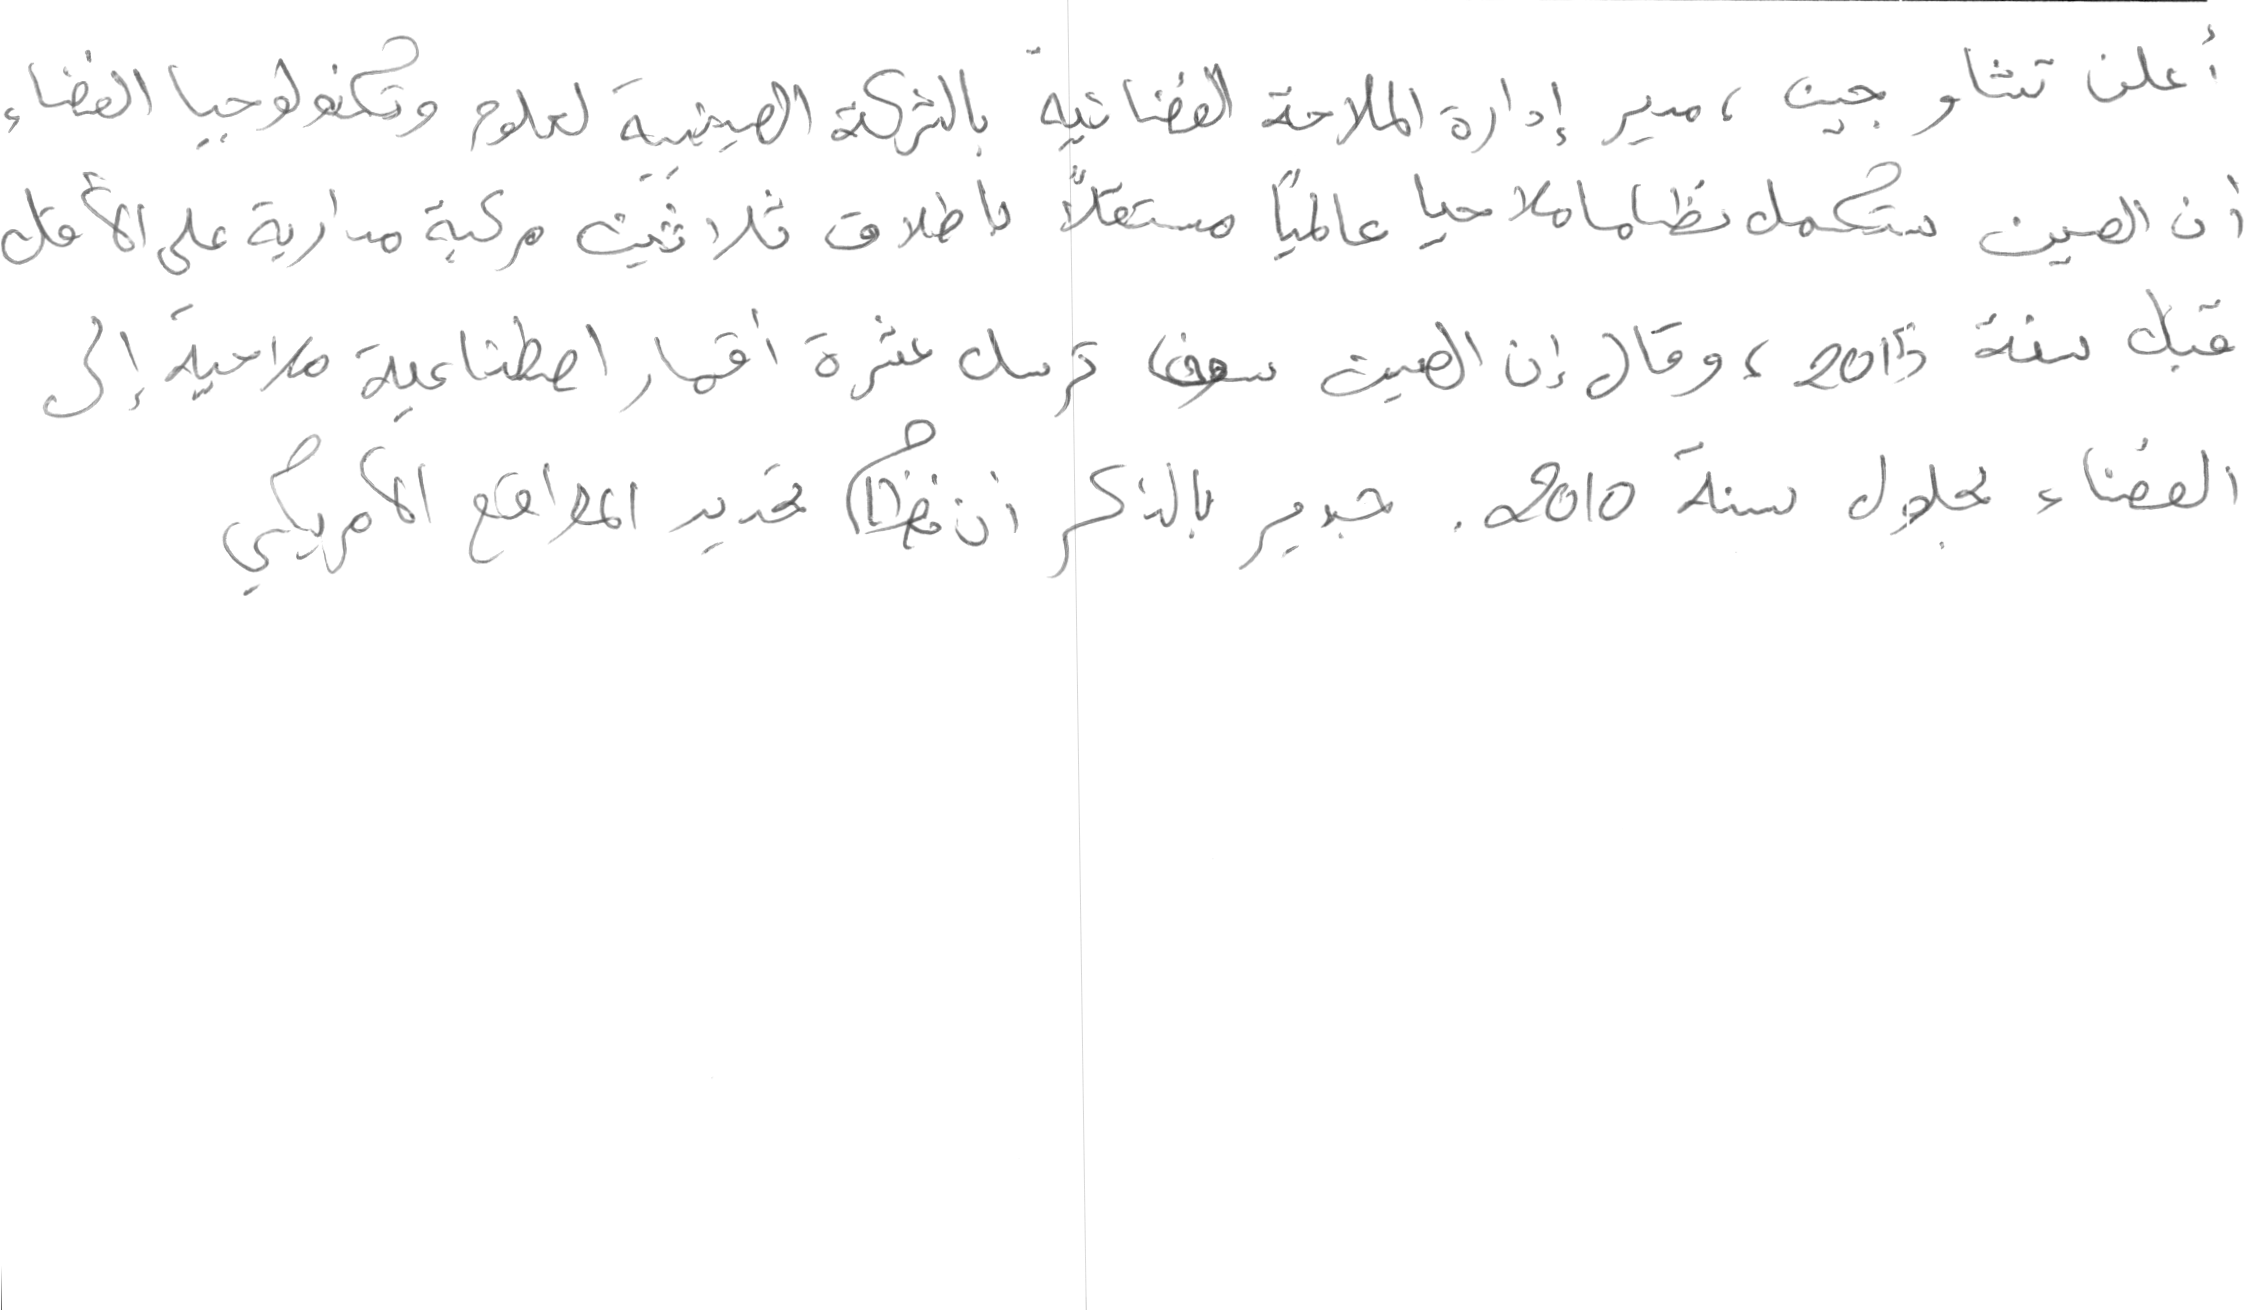 أعلن تشاو جين ، مدير إدارة الملاحة الفضائية بالشركة الصينية لعلوم وتكنولوجيا الفضاء
أن الصين ستكمل نظاما ملاحيا عالمياً مستقلاً بإطلاق ثلاثين مركبة مدارية على الأقل
قبل سنة 2015 ، وقال إن الصين سوف ترسل عشرة أقمار اصطناعية ملاحية إلى
الفضاء بحلول سنة 2010. جدير بالذكر أن نظام تحديد المواقع الأمريكي